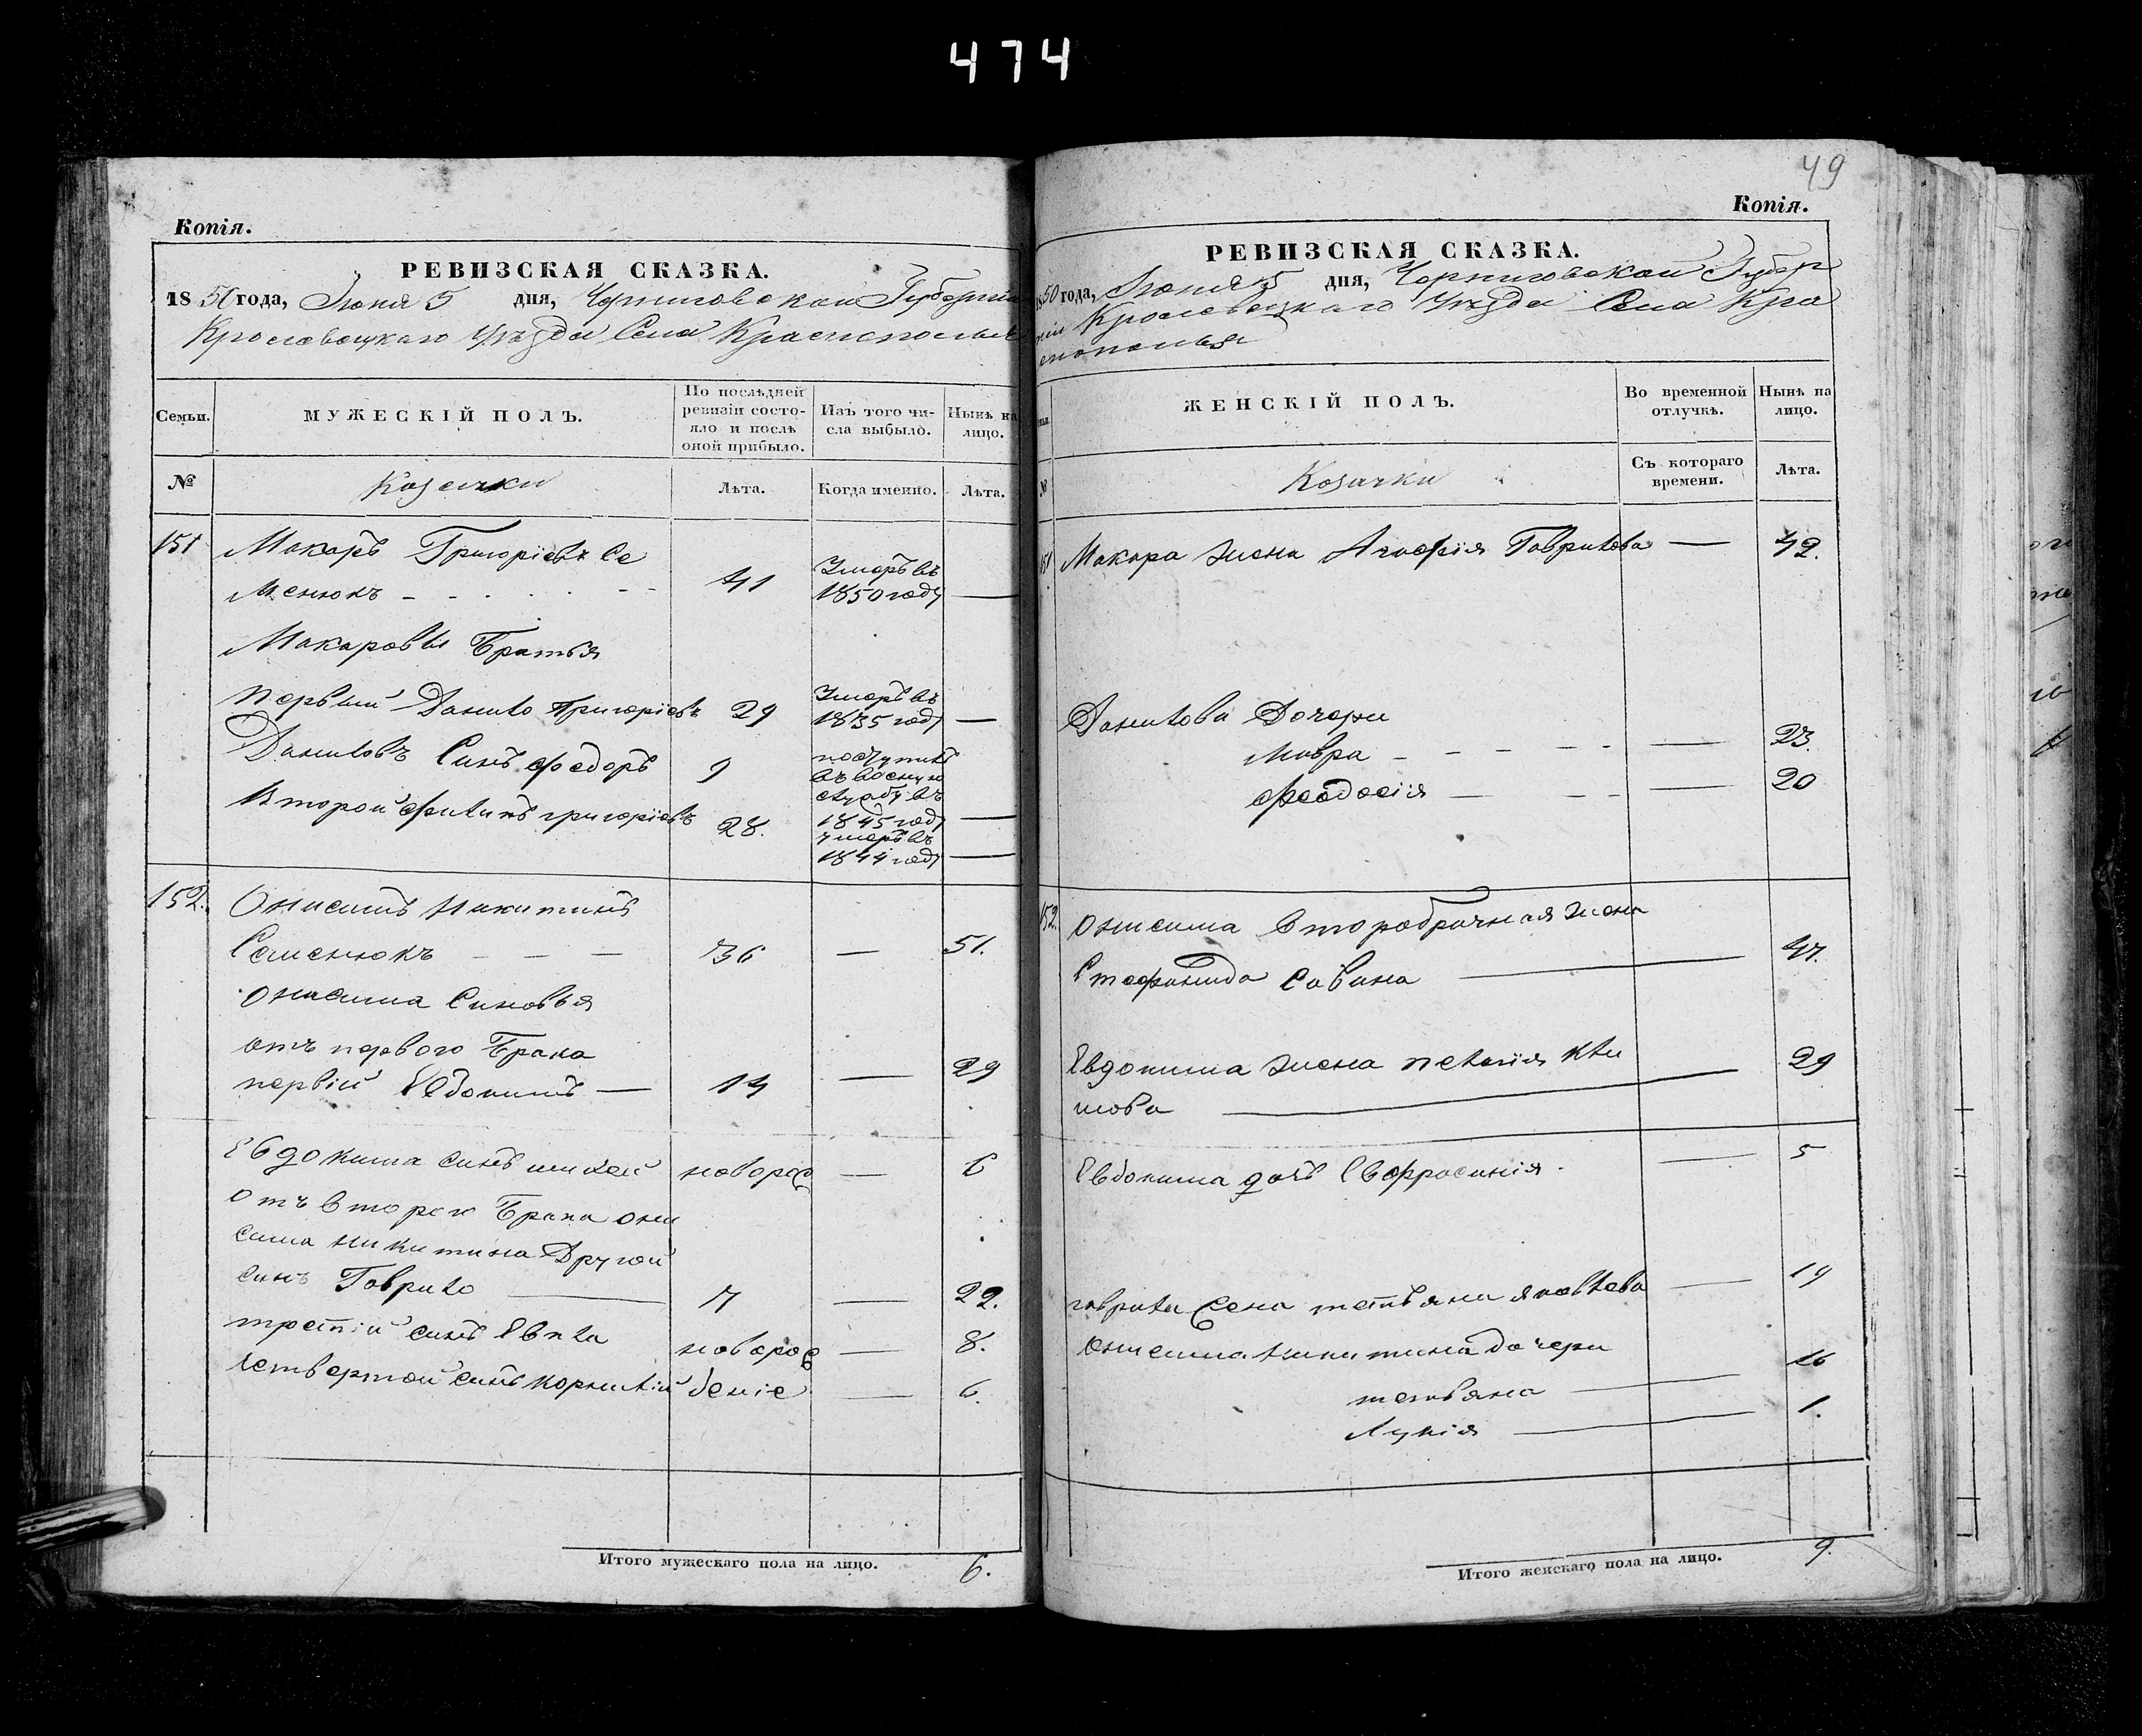 474
Копія.
РЕВИЗСКАЯ СКАЗКА.
1850 года, Іюня 5 дня, Черниговской Губерніи
Кролевецкаго Уѣзда Села Краснополья
Семьи.
МУЖЕСКІЙ ПОЛЪ.
По послѣдней ревизіи состояло и послѣ оной прибыло.
Изъ того числа выбыло.
Нынѣ на лицо.
№
Козачки
Лѣта.
Когда именно.
Лѣта.
151 Макаръ Григоріевъ Се
менюкъ - - - 41 Умеръ въ 1850 году —
Макаровы Братья
Первый Данило Григоріевъ 29 Умеръ въ 1835 году —
Даниловъ Синъ Федоръ 9 поступилъ въ военную службу въ 1845 году —
Второй Филипъ Григоріевъ 28. умеръ въ 1844 году —
152. Онисимъ Никитинъ
Семенюкъ — — — 36 — 51.
Онисима Синовья
отъ первого Брака
первій Евдокимъ — 14 — 29
Евдокима синъ михей новорож — 6
Отъ второго Брака они
сима Никитина Другой
синъ Гаврило — 7 — 22.
третій синъ новорож — 8.
Четвертой синъ Корнилій деніе — 6.
Итого мужескаго пола на лицо. 6.
49
Копія.
РЕВИЗСКАЯ СКАЗКА.
1850 года, Іюня 5 дня, Черниговской Губер
ніи Кролевецкаго Уѣзда Села Кра
снополья
№
ЖЕНСКІЙ ПОЛЪ.
Во временной отлучкѣ.
Нынѣ на лицо.
Козачки
Съ котораго времени.
Лѣта.
151 Макара жена Агафія Гаврилова — 42.
Данилова Дочери
Мавра - - - - — 23.
Феодосія — - - — 20
152. Онисима второбрачная жена
Стефанида Савина — 47.
Евдокима жена Пелагія Кли
мова — 29
Евдокима дочь Евфросинія - — 5
Гаврила жена татьяна яковлева — 19
Онисима Никитина дочери
татьяна — 16
Лукія — 1.
Итого женскаго пола на лицо. 9.